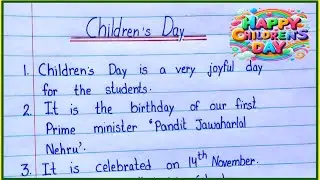 Children's Day
HAPPY
CHILDREN'S
DAY
1. Children's Day is a very joyful day
for the students.
2. It is the birthday of our first
Prime minister 'Pandit Jawaharlal
Nehru'.
3. It is celebrated on 14th November.